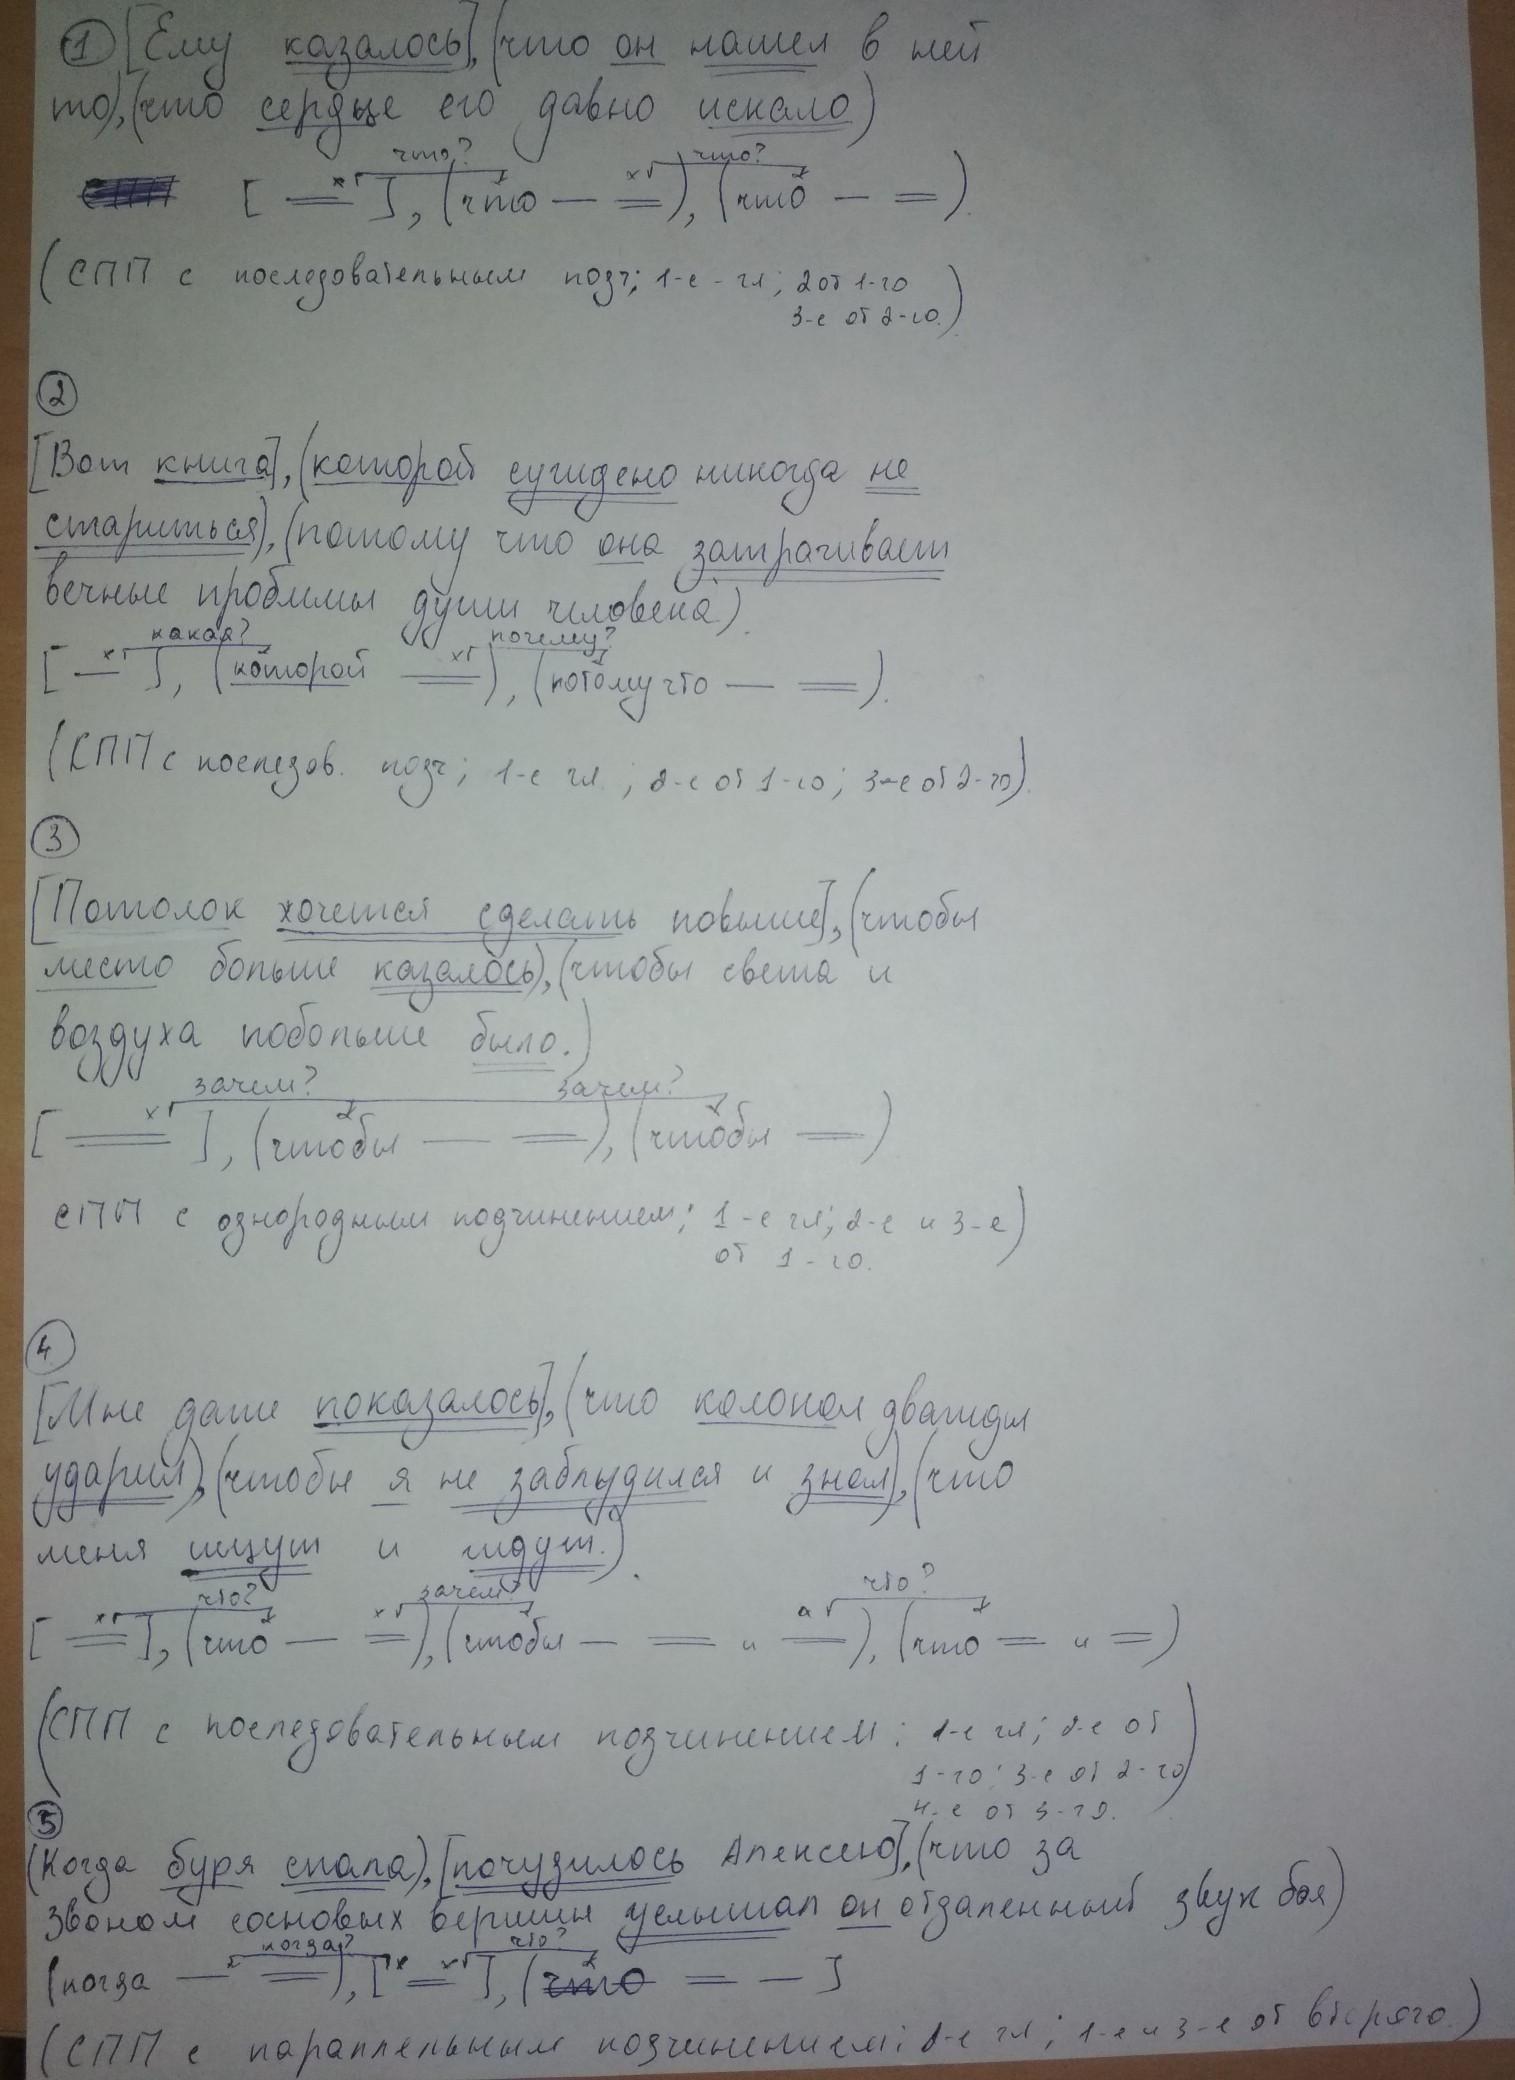 1 [Ему казалось], (что он нашел в ней
то), (что сердце его давно искало)
что? что?
[ ], (что — =), (что — =).
(СПП с последовательным подч; 1-е - гл; 2 от 1-го
3-е от 2-го.)
2
[Вот книга], (которой суждено никогда не
стариться), (потому что она затрагивает
вечные проблемы души человека).
какая? почему?
[ — ], (которой =), (потому что — =).
(СПП с последов. подч; 1-е гл.; 2-е от 1-го; 3-е от 2-го).
3
[Потолок хочется сделать повыше], (чтобы
место больше казалось), (чтобы света и
воздуха побольше было.)
зачем? зачем?
[ = ], (чтобы — =), (чтобы =)
СПП с однородным подчинением; 1-е гл; 2-е и 3-е)
от 1-го.
4
[Мне даже показалось], (что колокол дважды
ударил), (чтобы я не заблудился и знал), (что
меня ищут и ждут.).
что? зачем? что?
[ = ], (что — =), (чтобы — = и =), (что = и =)
(СПП с последовательным подчинением: 1-е гл; 2-е от
1-го; 3-е от 2-го)
4-е от 3-го.
5
(Когда буря спала), [почудилось Алексею], (что за
звоном сосновых вершин услышал он отдаленный звук боя)
когда? что?
(когда — =), [ = ], (что = — ]
(СПП с параллельным подчинением; 2-е гл; 1-е и 3-е от второго.)